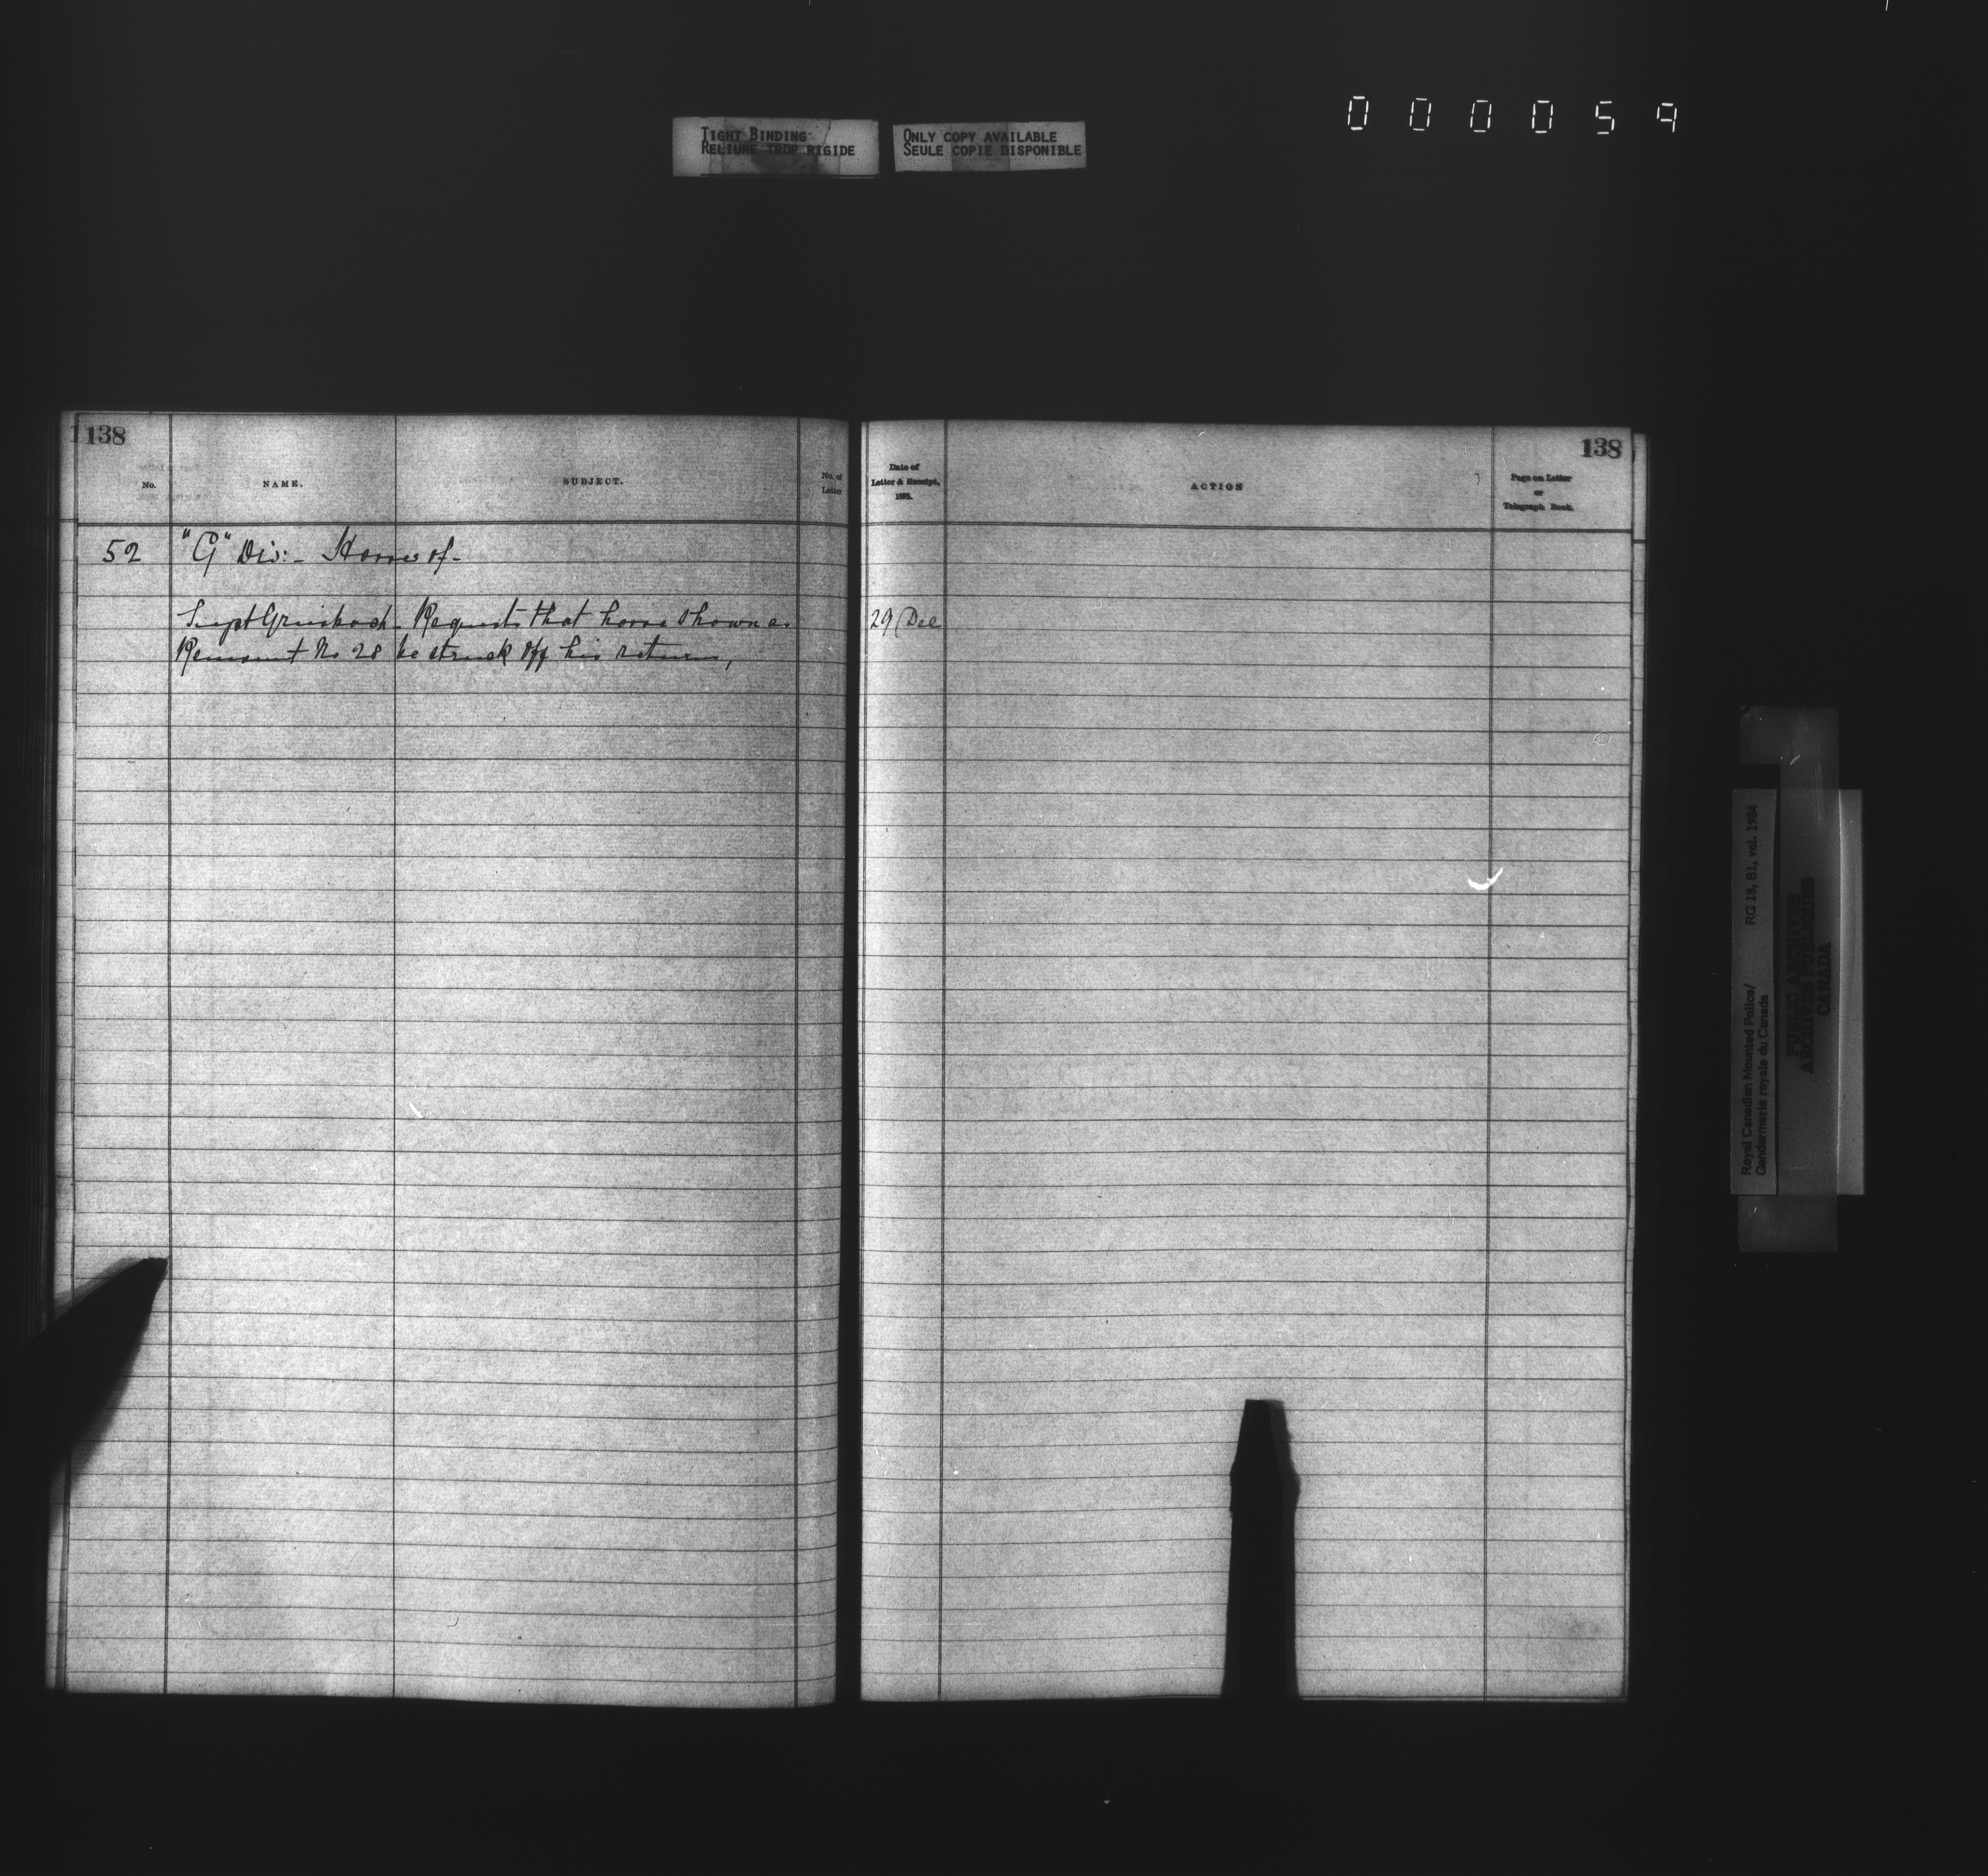 000059
TIGHT BINDING
RELIURE TROP RIGIDE
ONLY COPY AVAILABLE
SEULE COPIE DISPONIBLE
138
No.
NAME.
SUBJECT.
No. of
Letter
52 "G" Div:- Horses of-
Supt Griesbach - Requests that horse shown as
Remount No 28 be struck off his returns,
138
Date of
Letter & Receipt,
1885.
ACTION
Page on Letter
or
Telegraph Book.
29 Dec
Royal Canadian Mounted Police/ RG 18, B1, vol. 1984
Gendarmerie royale du Canada
PUBLIC ARCHIVES
ARCHIVES PUBLIQUES
CANADA